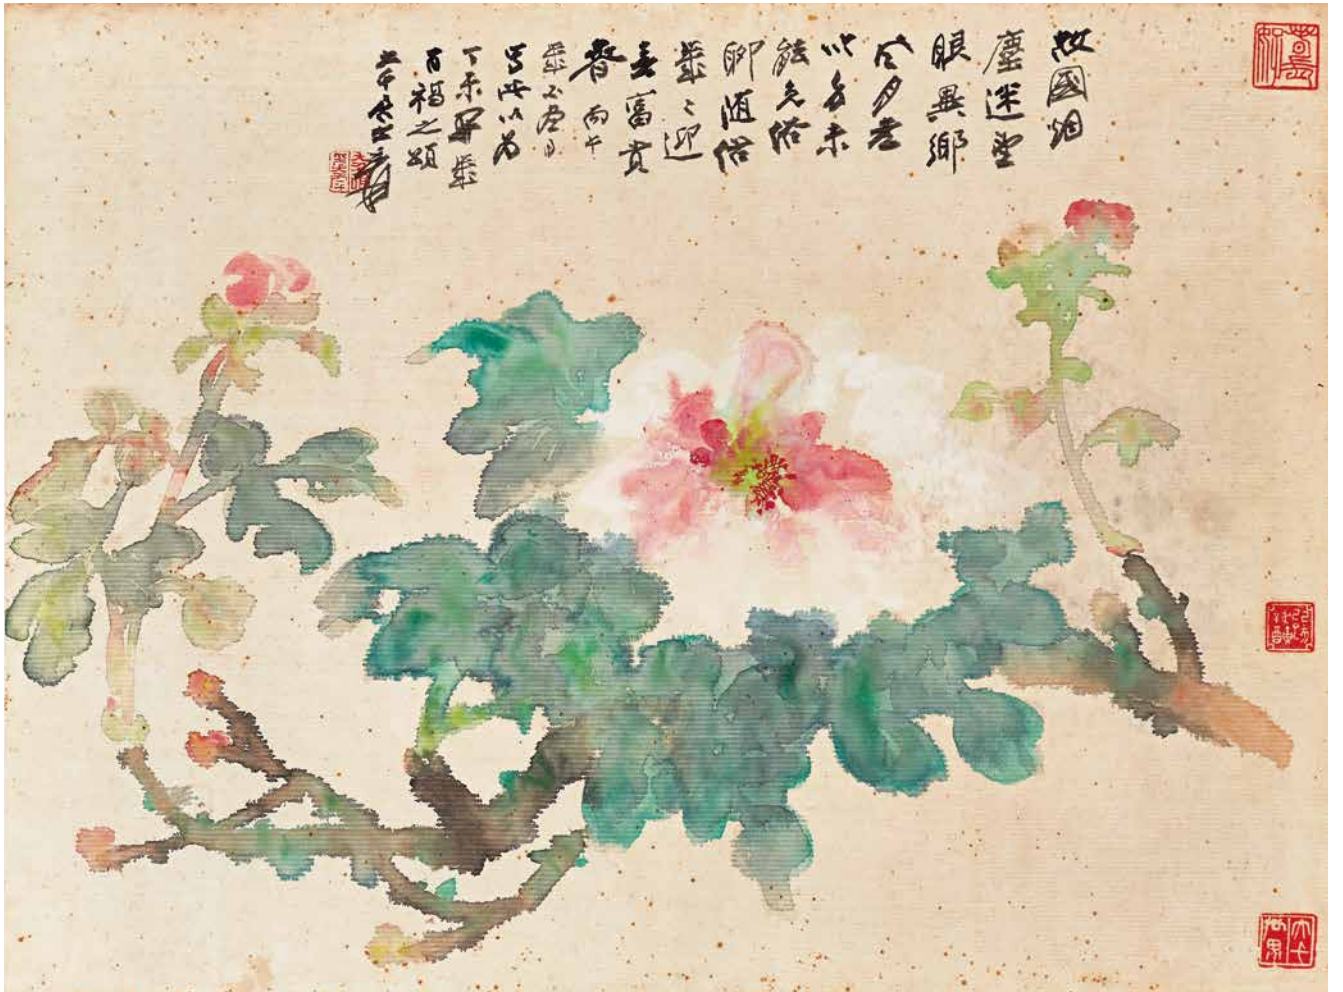 故國烟
塵迷望
眼異鄉
風月老
此身未
能免俗
聊隨俗
歲〻迎
春富貴
春 丙午
歲不盡日
寫此以為
丁未開歲
百福之頌
大千居士爰